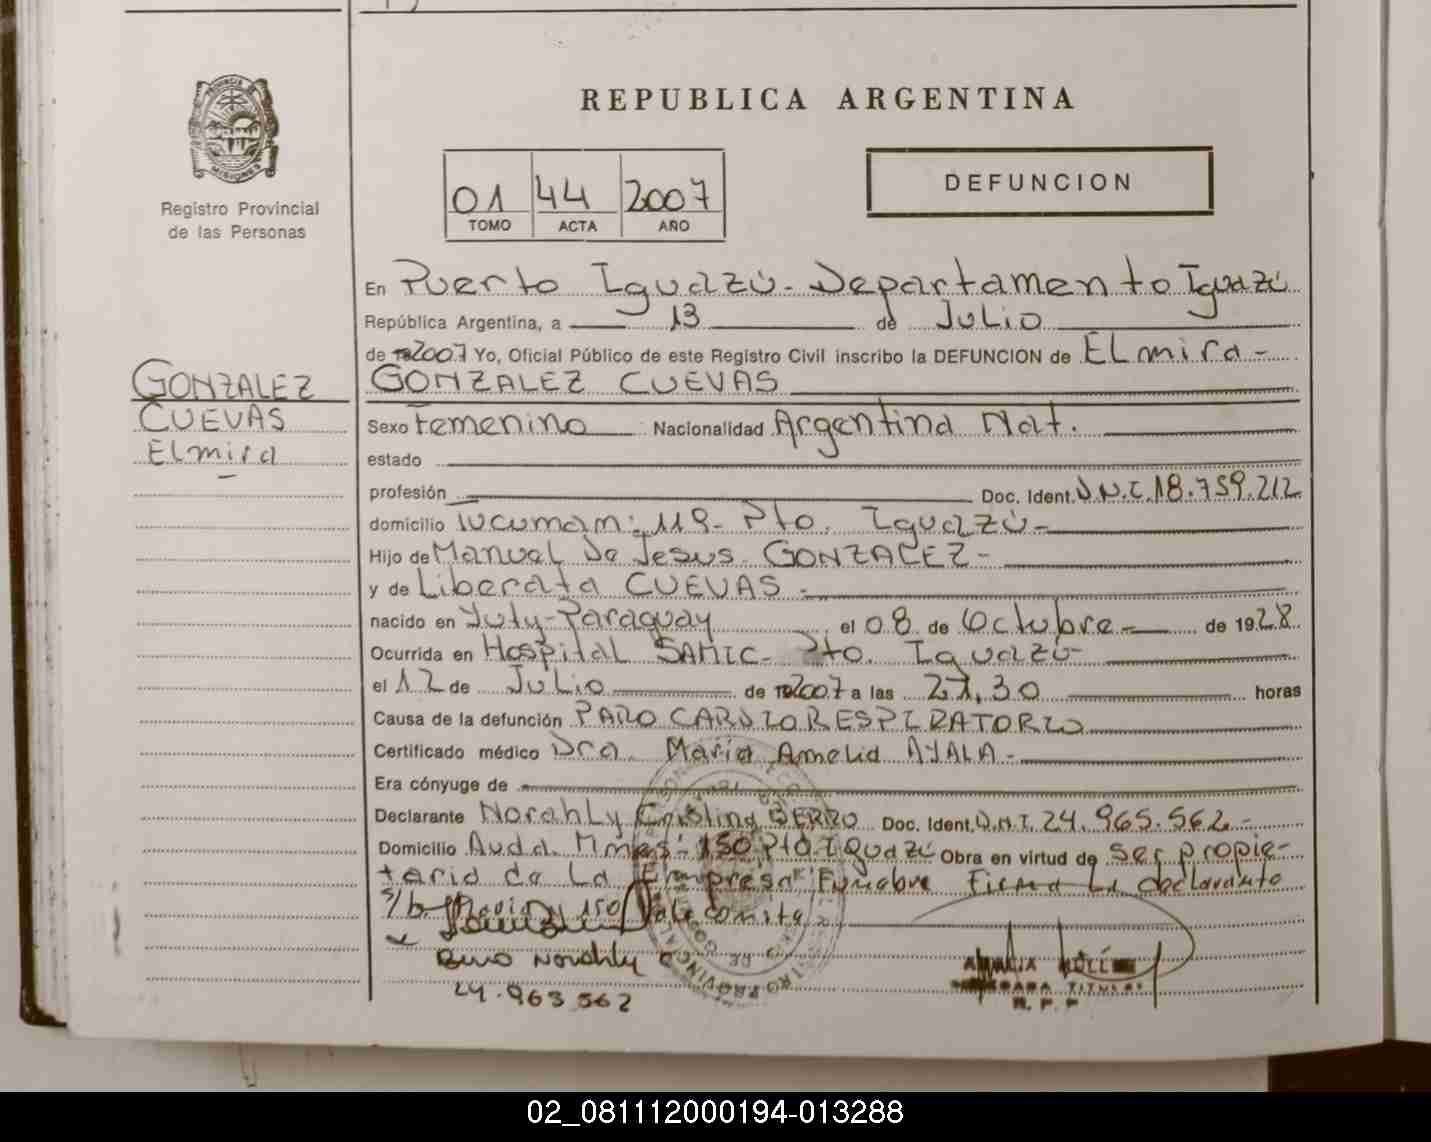 REPUBLICA ARGENTINA
PROVINCIA DE MISIONES
Registro Provincial
de las Personas
01 44 2007
TOMO ACTA AÑO
DEFUNCION
GONZALEZ
CUEVAS
Elmira
En Puerto Iguazú - Departamento Iguazú
República Argentina, a 13 de Julio
de 2007 Yo, Oficial Público de este Registro Civil inscribo la DEFUNCION de Elmira -
GONZALEZ CUEVAS
Sexo Femenino Nacionalidad Argentina Nat.
estado
profesión Doc. Ident. D.N.I. 18.759.212
domicilio Tucumam: 119 - Pto. Iguazú -
Hijo de Manuel De Jesus GONZALEZ -
y de Liberata CUEVAS -
nacido en Yuty - Paraguay el 08 de Octubre - de 1928
Ocurrida en Hospital SAMIC - Pto. Iguazú -
el 12 de Julio de 2007 a las 21,30 horas
Causa de la defunción PARO CARDIORESPIRATORIO
Certificado médico Dra. Maria Amelia AYALA -
Era cónyuge de
Declarante Norahly Cristina BERRO Doc. Ident. D.N.I. 24.965.562 -
Domicilio Avda. Mnes: 150 Pto. Iguazú Obra en virtud de Ser propie-
taria de La Empresa Funebre Firma La declarante
s/b 150 Vale
Norahly C
24.965.562
TITULAR
R. P. P
02_081112000194-013288